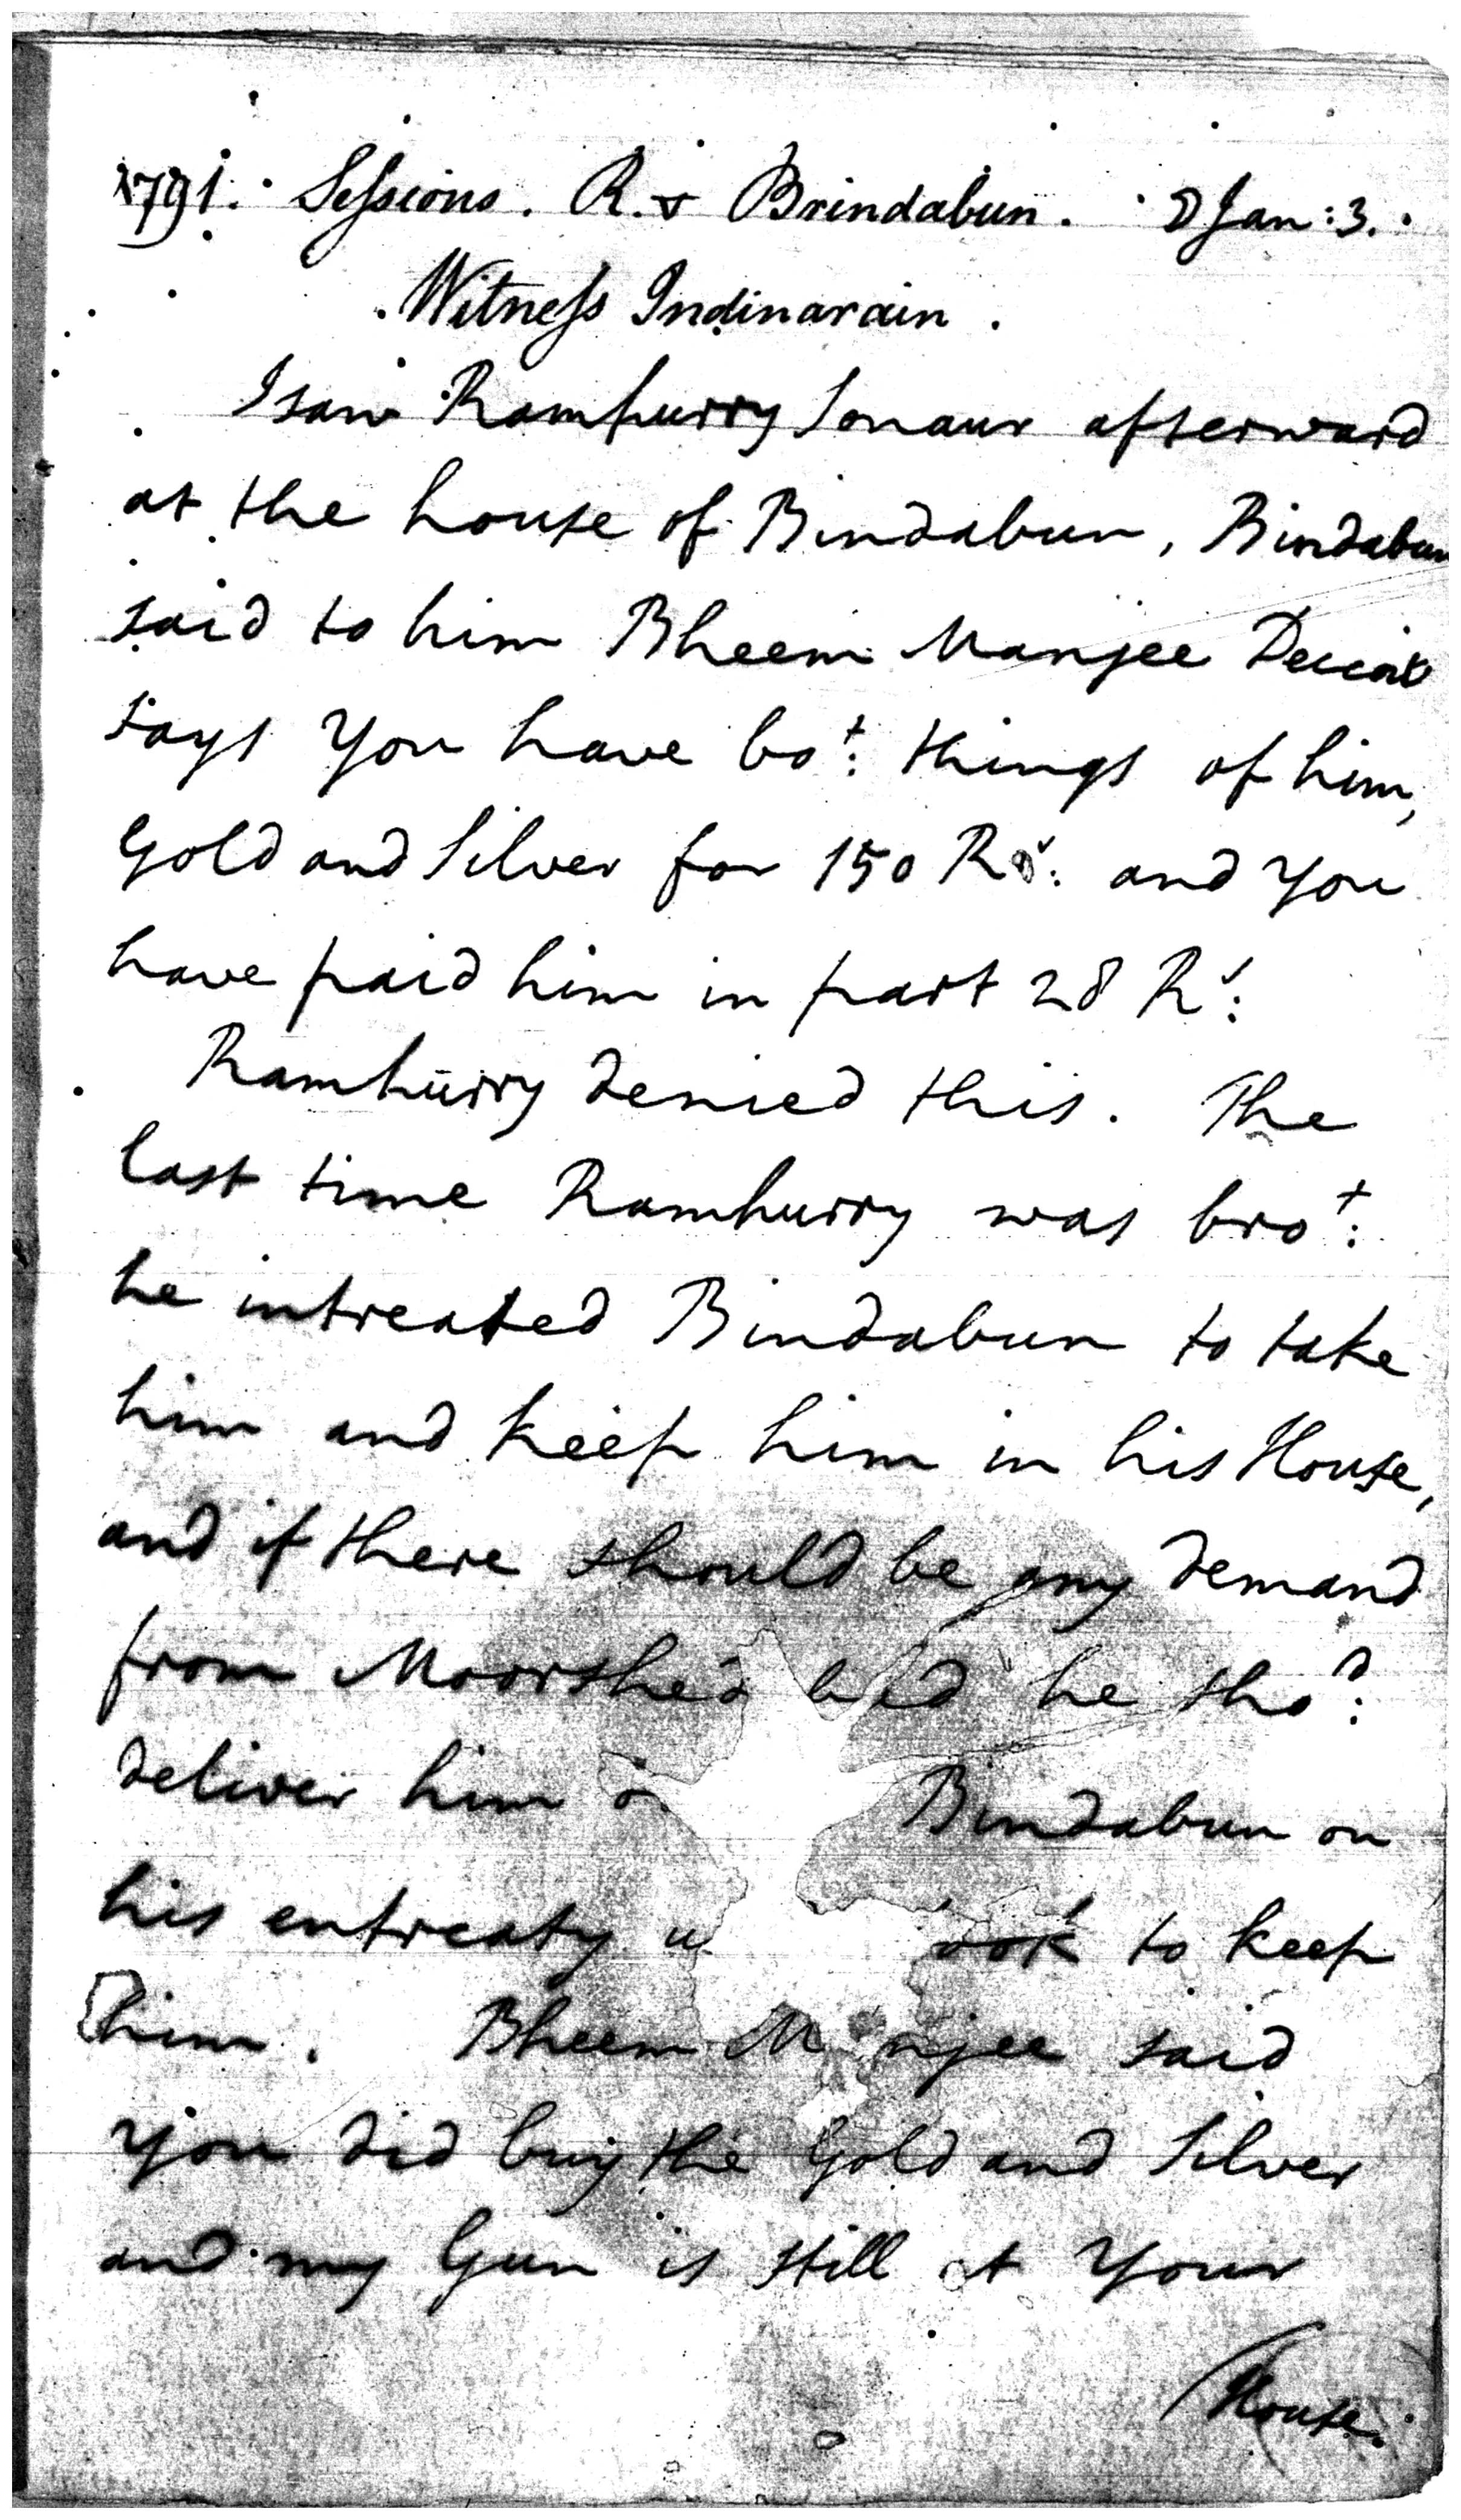 1791. Sessions. R. v Brindabun. 8 Jan: 3.
Witness Indinarain.
I saw Ramhurry Sonaur afterward
at the house of Bindabun, Bindabun
said to him Bheem Manjee Decoit
says You have bot: things of him,
Gold and Silver for 150 Rs: and you
have paid him in part 28 Rs:
Ramhurry denied this. The
last time Ramhurry was brot:
he intreated Bindabun to take
him and keep him in his House,
and if there should be any demand
from Moorshed bad he shod:
deliver him Bindabun on
his entreaty ook to keep
him. Bheem Manjee said
You did buy the Gold and Silver
and my Gun is still at Your
House.